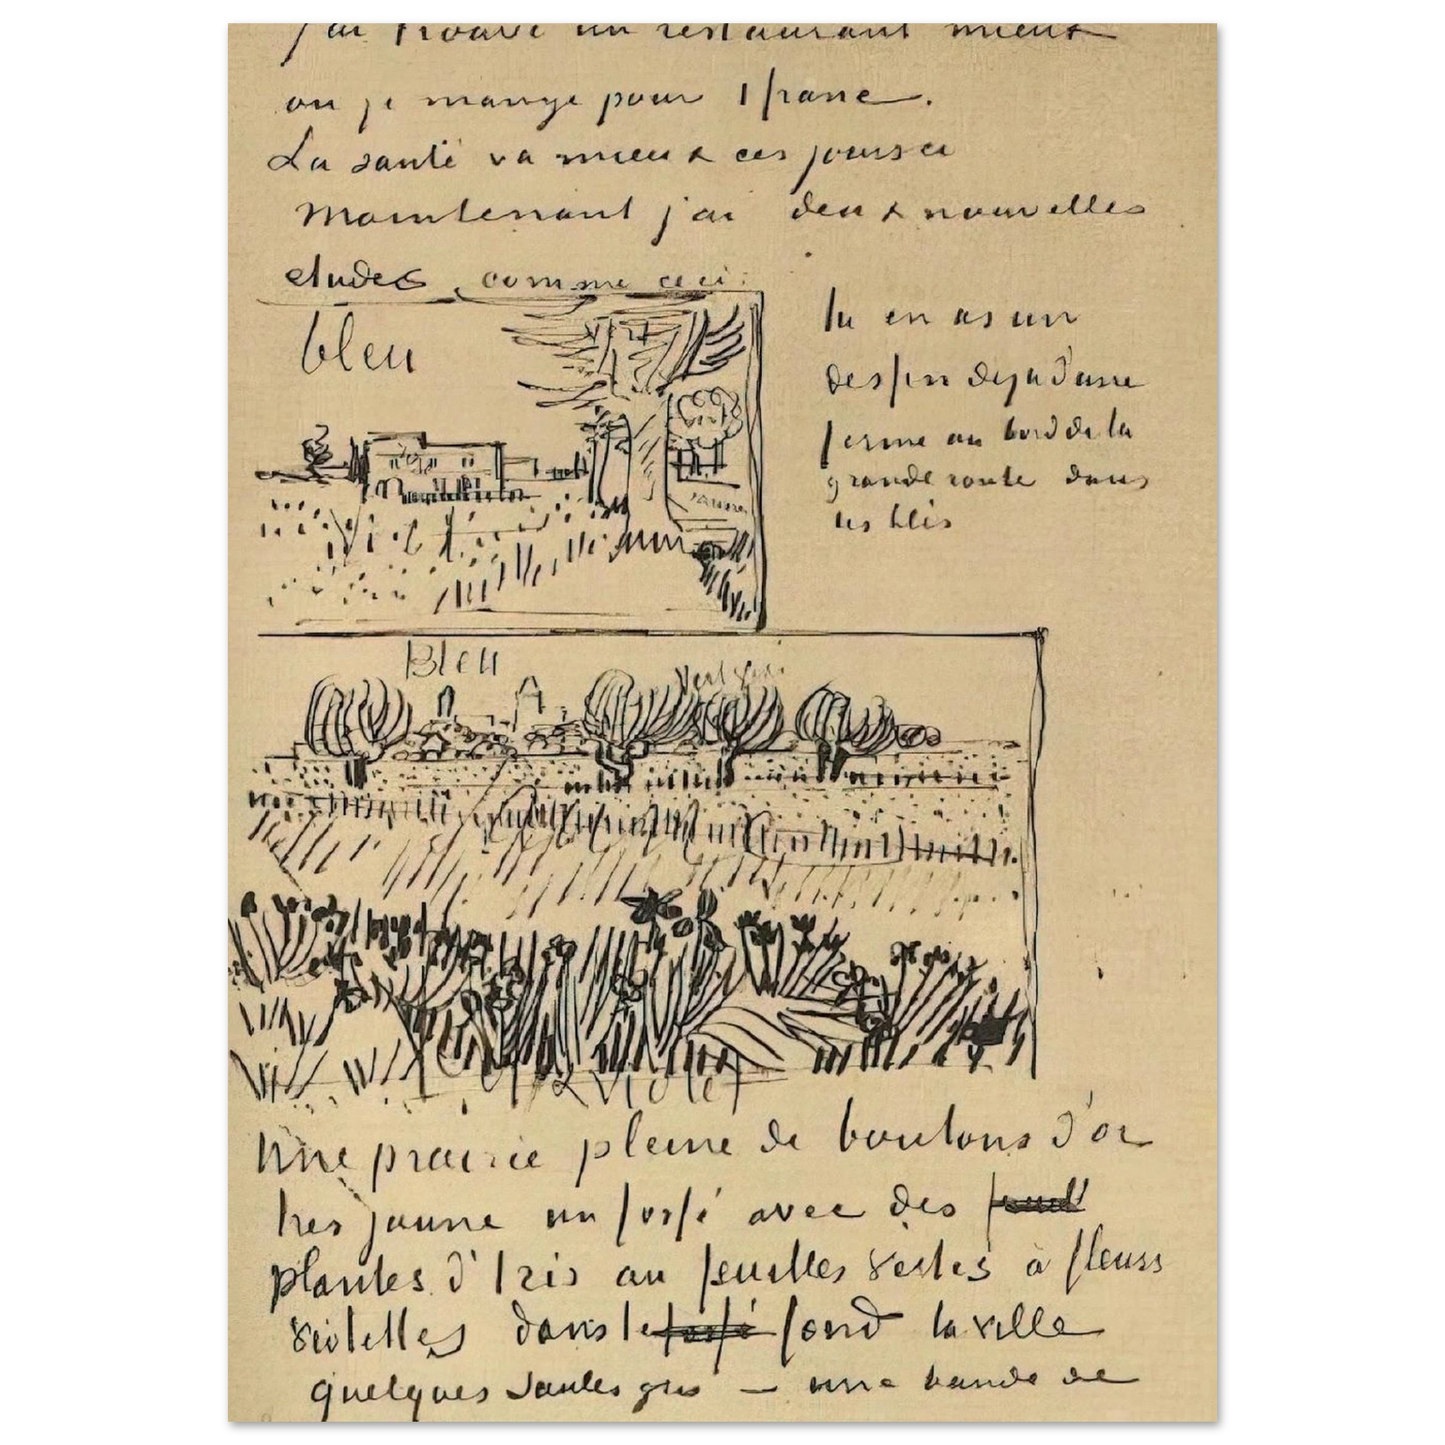 j'ai trouvé un restaurant mieux
ou je mange pour 1 franc.
La santé va mieux ces jours ci
Maintenant j'ai deux nouvelles
etudes, comme ceci:
bleu
vert
vert
jaune
tu en as un
dessin deja d'une
ferme au bord de la
grande route dans
les blés
Bleu
vert gris
Violet
Une prairie pleine de boutons d'or
tres jaune un fossé avec des
plantes d'Iris au feuilles vertes à fleurs
violettes dans le fossé fond la ville
quelques saules gris — une bande de